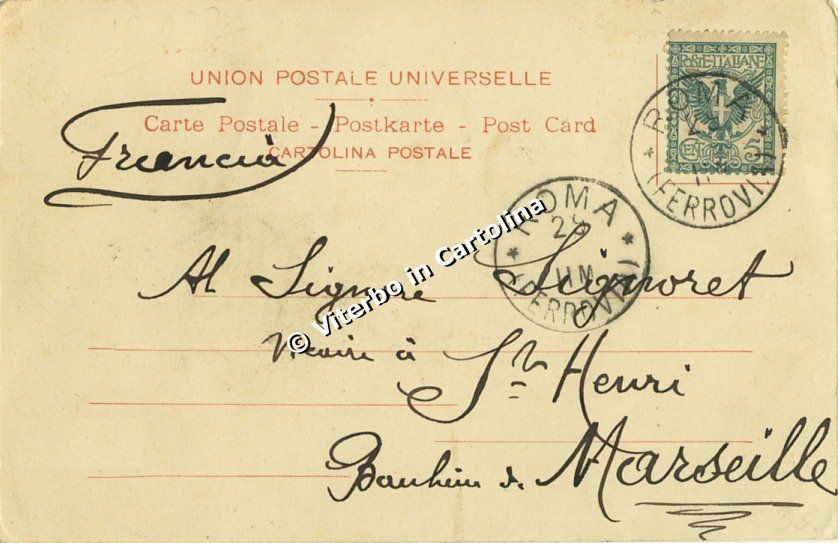 UNION POSTALE UNIVERSELLE
Carte Postale - Postkarte - Post Card
CARTOLINA POSTALE
Francia
POSTE ITALIANE
CENT 5
ROMA
(FERROVIA)
ROMA
(FERROVIA)
© Viterbo in Cartolina
Al Signore Signoret
Vicaire à St Henri
Banlieue de Marseille